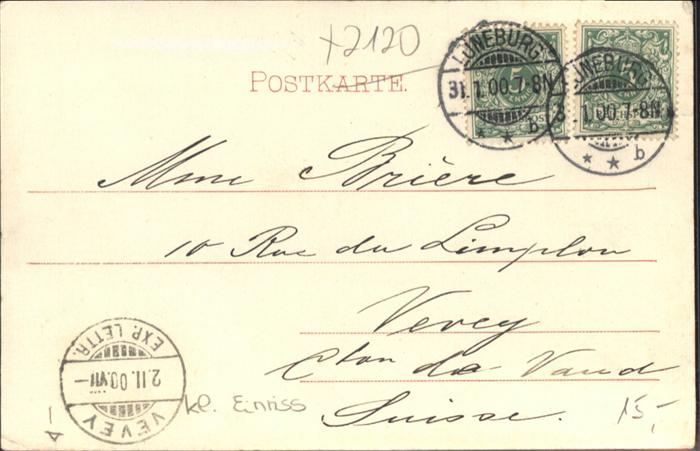 +2120
POSTKARTE.
LÜNEBURG
31.1.00.7-8N
* * b
LÜNEBURG
1.00.7-8N
* * b
5
Mme Brière
10 Rue du Simplon
Vevey
Cton de Vaud
Suisse.
VEVEY
2.II.00.VII—
EXP. LETTR.
kl. Einriss
15,-